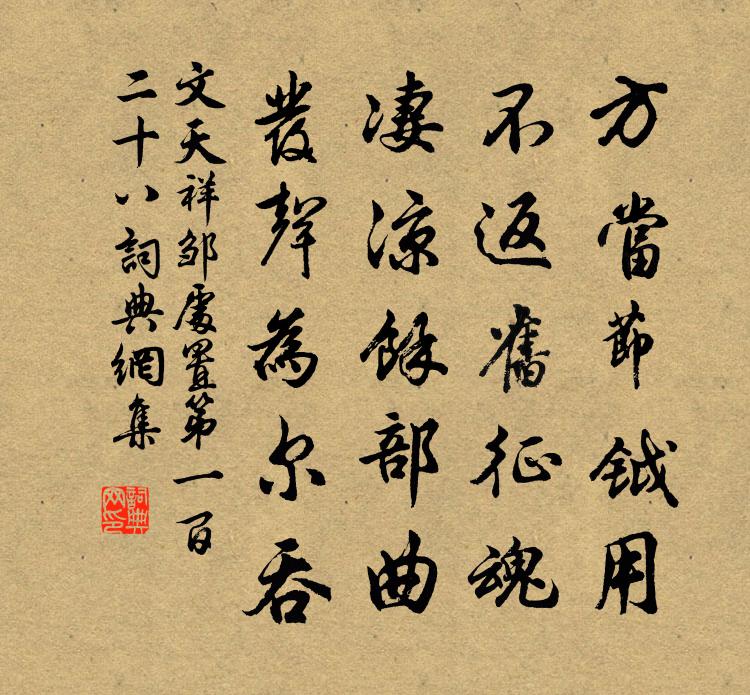 方當節鉞用
不返舊征魂
凄涼餘部曲
發聲為尔吞
文天祥邹處置第一百
二十八詞典網集
詞典网印